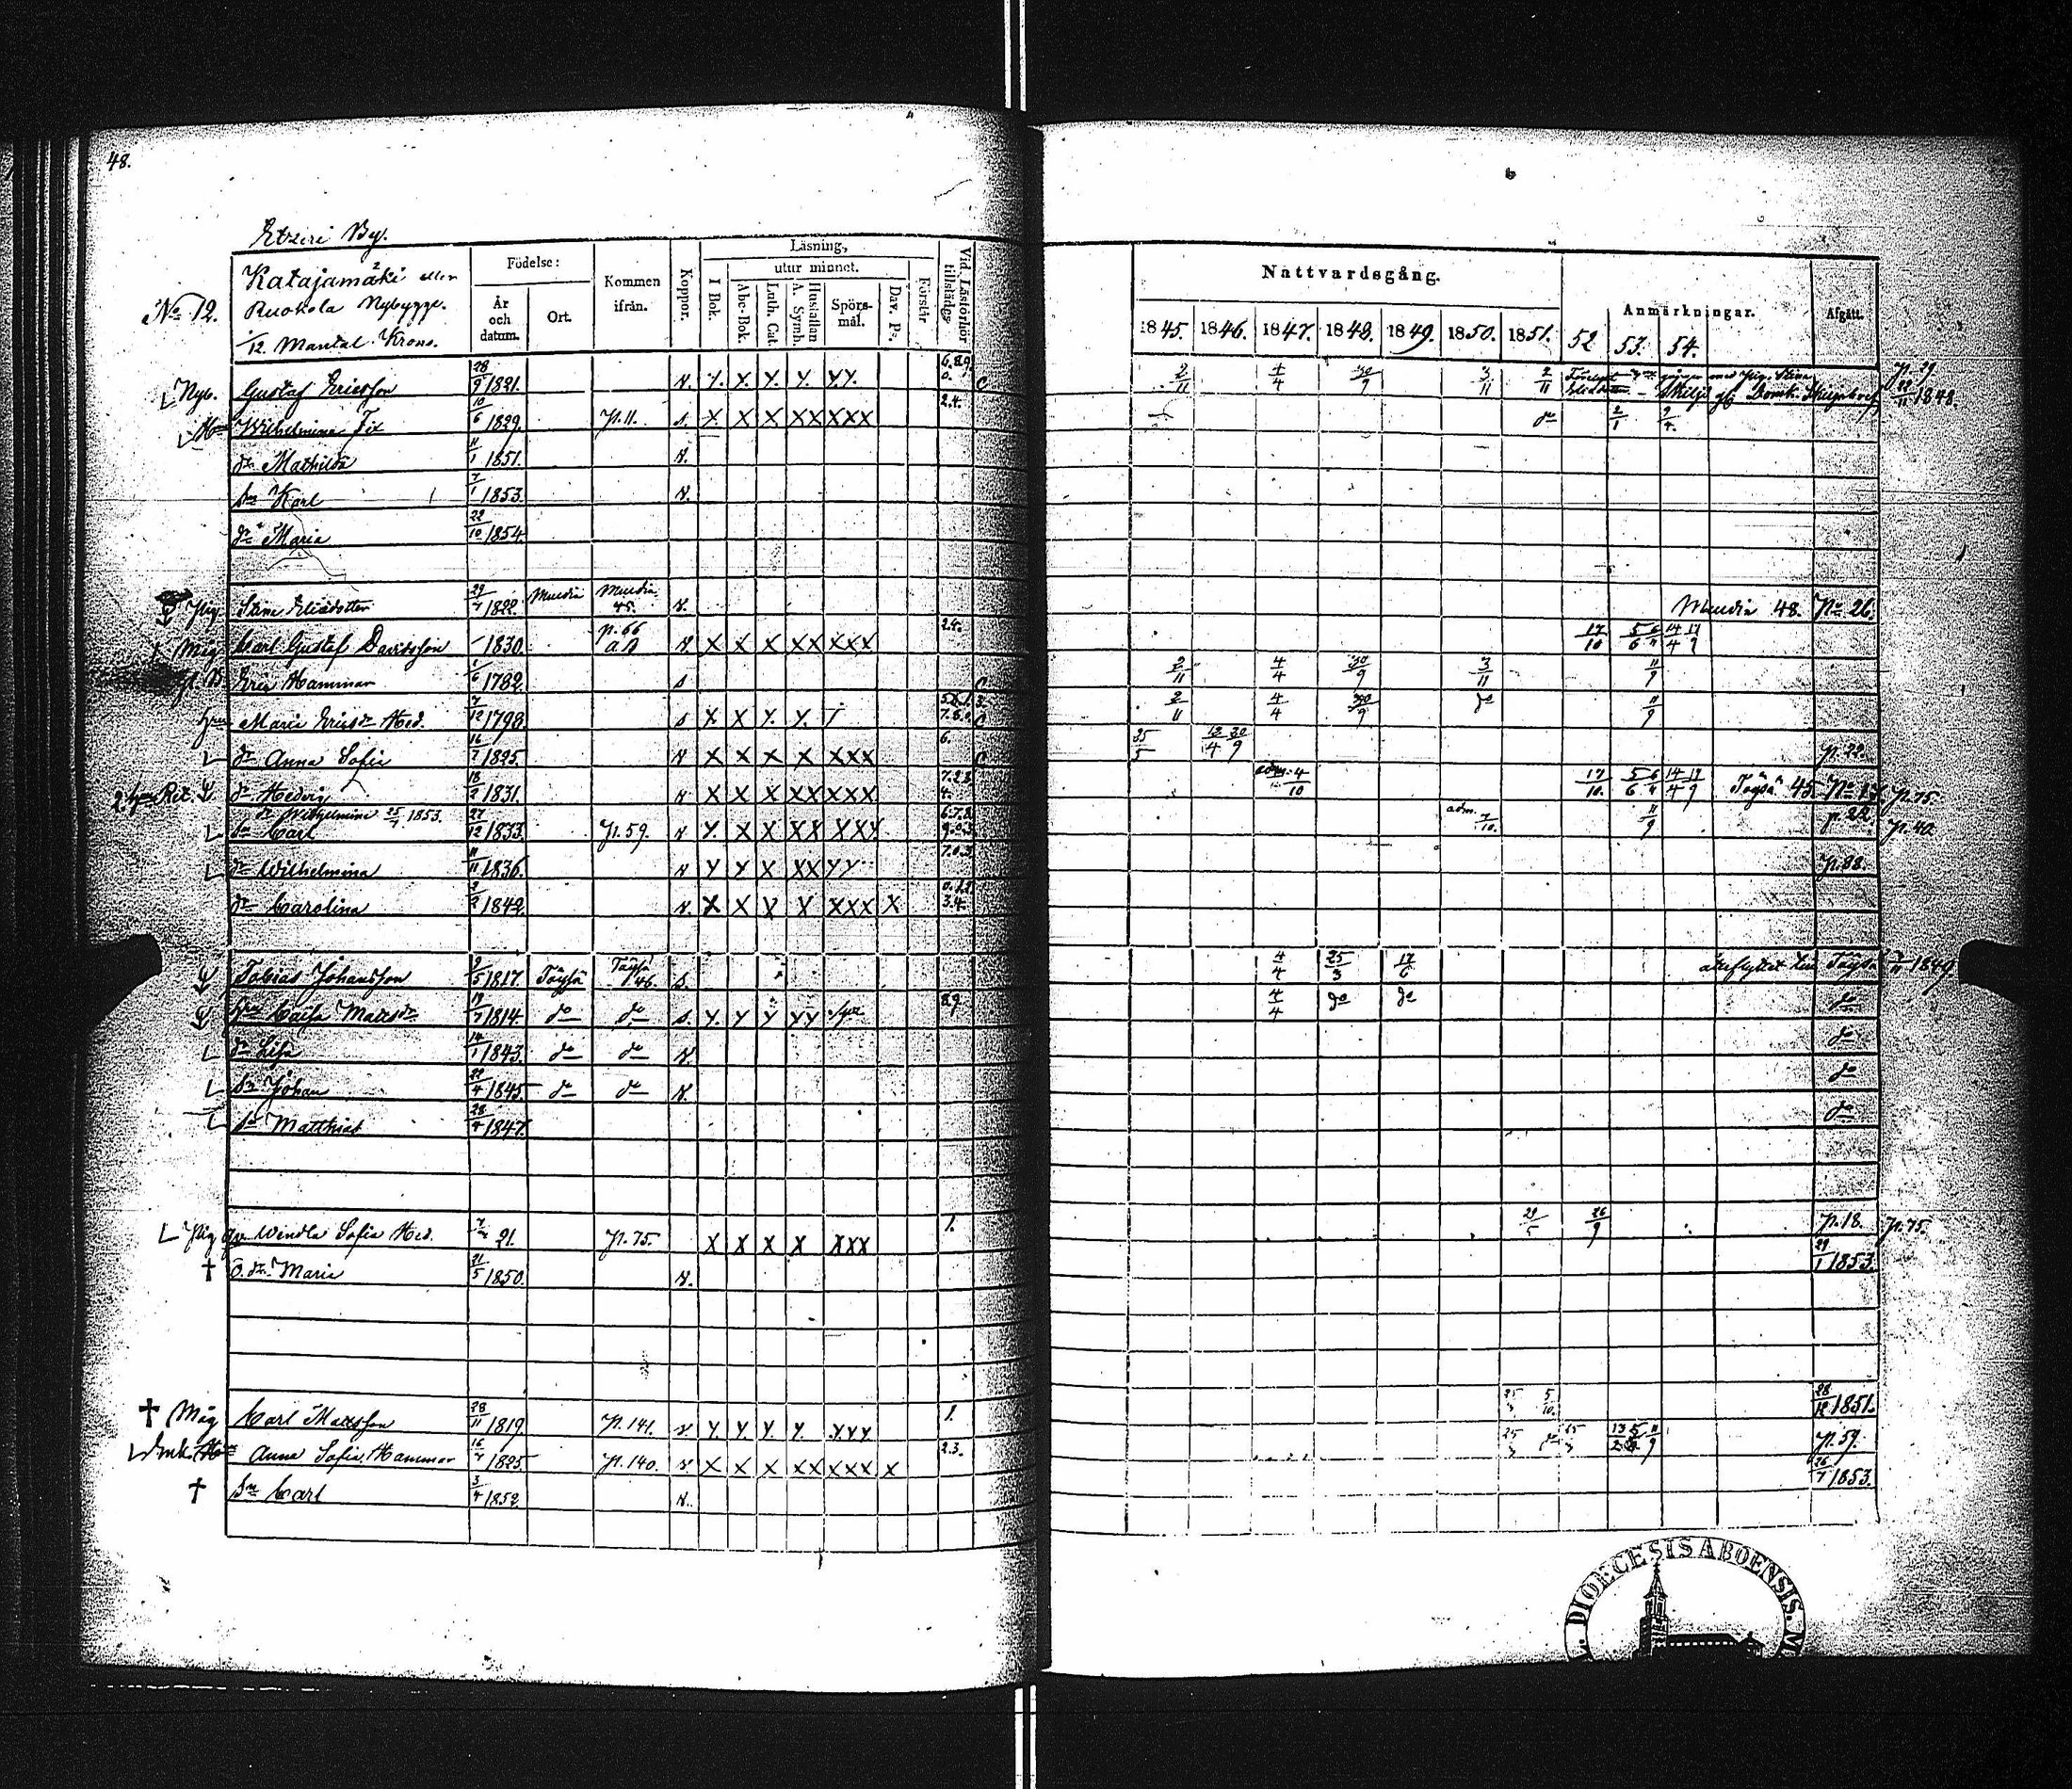 48.
Etzeri By.
No 12.
Katajamäki eller
Ruokola Nybygge.
1/12 Mantal Krono.
Födelse:
År och datum.
Ort.
Kommen ifrån.
Koppor.
Läsning,
I Bok.
utur minnet.
Abc-Bok.
Luth. Cat.
Hustaflan A. Symb.
Spörsmål.
Dav. Ps.
Förstår.
Vid Läsförhör tillstädes
Nattvardsgång.
1845. 1846. 1847. 1848. 1849. 1850. 1851. 52 53. 54.
Anmärkningar.
Afgått.
Nyb. Gustaf Ericsson 28/9 1821. N. Y. Y. Y. Y. YY. 6.8.9. 0. C 2/11 4/4 30/9 3/11 2/11 p. 29 22/11 1848.
Wilhelmina Fix 10/6 1829. p. 11. s. X X X XX XXX 2.4. do 2/1 2/4
dr Mathilda 11/1 1851. N.
Sn Karl 7/1 1853. N.
dr Maria 22/10 1854.
Pig. Stina Eliædotter 29/7 1822. Multia Multia 45. N. Multia 48. No 26.
Måg Carl Gustaf Davidsson 1830. p. 66 N X X X XX XXX 2.4. 17/10 5/6 6/11 14/4 17/9
Eric Hammar 1/6 1782. s C 2/11 4/4 30/9 3/11 11/9
hu Maria Ericsdr Hed. 7/12 1798. s X X Y. Y. C 2/11 4/4 30/9 do 11/9
dr Anna Sofia 16/7 1825. N X X X X XXX 6. C 25/5 12/4 20/9 p. 22.
dr Hedvig 18/2 1831. N X X X XX XXX 7.2.3. 4. adm. 4/10 17/10 5/6 6/11 14/4 17/9 Töysä 45. p. 75.
dr Wilhelmina 25/7 1853.
Sn Carl 27/12 1833. p. 59. N Y. X X XX XXX 6.7.8. 9.0.3. adm. 7/10. 11/9 p. 22. p. 40.
dr Wilhelmina 11/11 1836. N Y Y X XX YY 7.0.3 p. 88.
dr Carolina 2/2 1842. N. X X Y X XXX X 0.1.2. 3.4.
Tobias Johansson 9/5 1817. Töysä Töysä 46. s. 4/4 25/3 17/6 återflyttat till Töysä 1849
hu Caisa Mattsdr 19/7 1814. do do s. Y. Y Y YY 8.9. 4/4 do do do
dr Lisa 14/1 1843. do do N. do
Sn Johan 22/4 1845 do do N. do
Sn Matthias 28/4 1847. do
Pig Windla Sofia Hed. 21. p. 75. X X X X XXX 1. 29/5 26/9 p. 18. p. 75.
† O. dr Maria 21/5 1850. N. 29/1 1853.
† Måg Carl Mattsson 28/11 1819. p. 141. Y. Y. Y. Y. YYY 1. 5/10. 28/12 1851.
Enk. Anna Sofia Hammar 16/7 1825. p. 140. X X X XX XXX X 2.3. p. 59.
† Sn Carl 3/4 1852. N. 26/7 1853.
DIOECESIS ABOENSIS. M